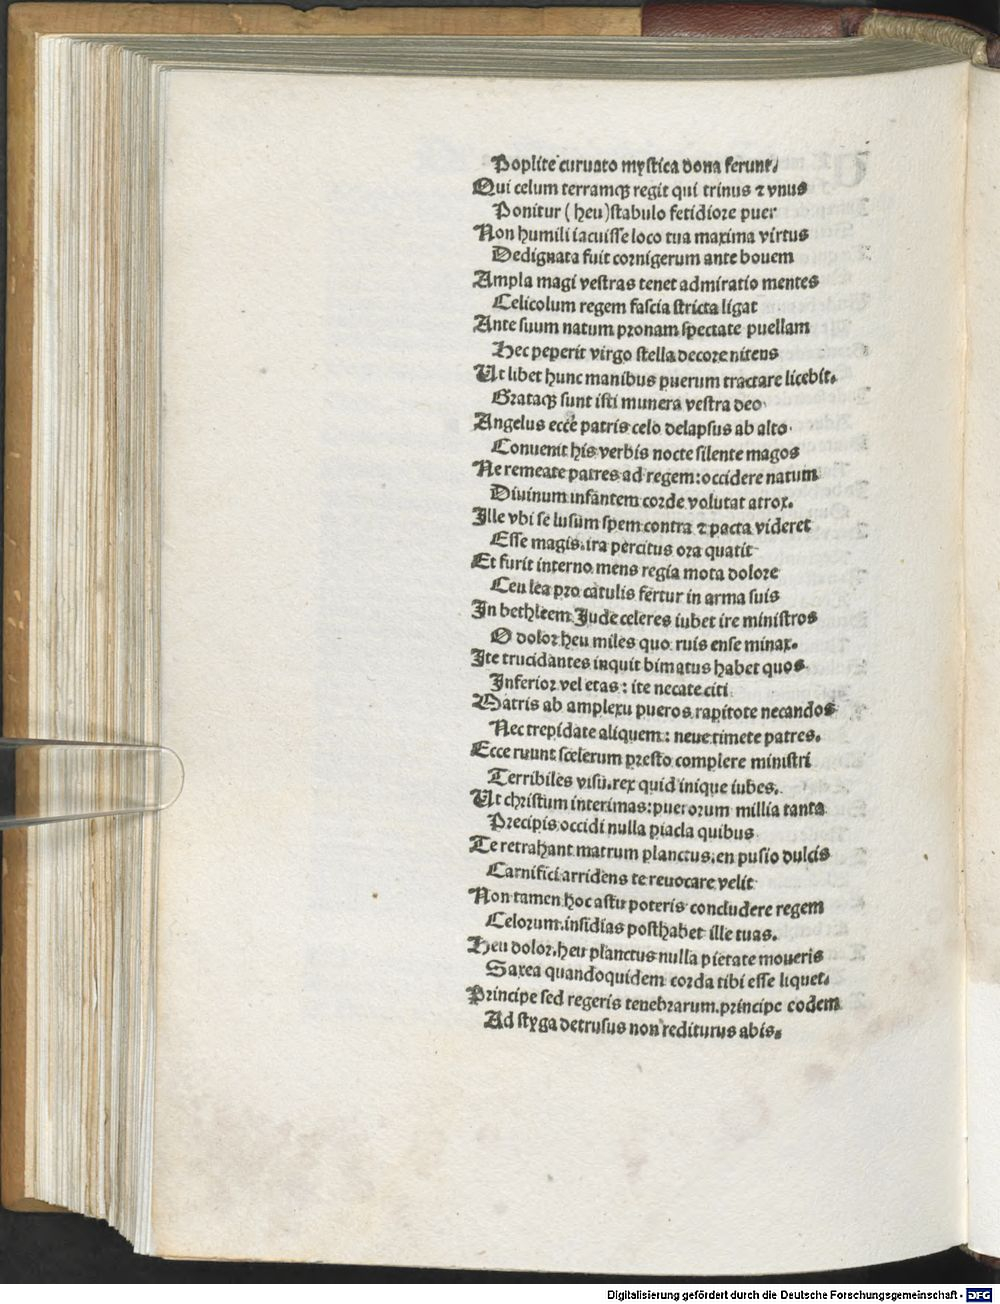 Poplite curuato mystica dona ferunt.
Qui celum terramqȝ regit qui trinus ⁊ vnus
Ponitur (heu) stabulo fetidiore puer
Non humili iacuisse loco tua maxima virtus
Dedignata fuit cornigerum ante bouem
Ampla magi vestras tenet admiratio mentes
Celicolum regem fascia stricta ligat
Ante suum natum pronam spectate puellam
Hec peperit virgo stella decore nitens
Ut libet hunc manibus puerum tractare licebit.
Grataqȝ sunt isti munera vestra deo
Angelus ecce patris celo delapsus ab alto
Conuenit his verbis nocte silente magos
Ne remeate patres ad regem: occidere natum
Diuinum infantem corde volutat atrox.
Ille vbi se lusum spem contra ⁊ pacta videret
Esse magis. ira percitus ora quatit
Et furit interno mens regia mota dolore
Ceu lea pro catulis fertur in arma suis
In bethleem Jude celeres iubet ire ministros
O dolor heu miles quo ruis ense minax.
Ite trucidantes inquit bimatus habet quos
Inferior vel etas: ite necate citi
Matris ab amplexu pueros rapitote necandos
Nec trepidate aliquem: neue timete patres.
Ecce ruunt scelerum presto complere ministri
Terribiles visu. rex quid inique iubes.
Ut christum interimas: puerorum millia tanta
Precipis occidi nulla piacla quibus
Te retrahant matrum planctus. en pusio dulcis
Carnifici arridens te reuocare velit
Non tamen hoc astu poteris concludere regem
Celorum. insidias posthabet ille tuas.
Heu dolor. heu planctus nulla pietate moueris
Saxea quandoquidem corda tibi esse liquet.
Principe sed regeris tenebrarum. principe eodem
Ad styga detrusus non rediturus abis.
Digitalisierung gefördert durch die Deutsche Forschungsgemeinschaft - DFG